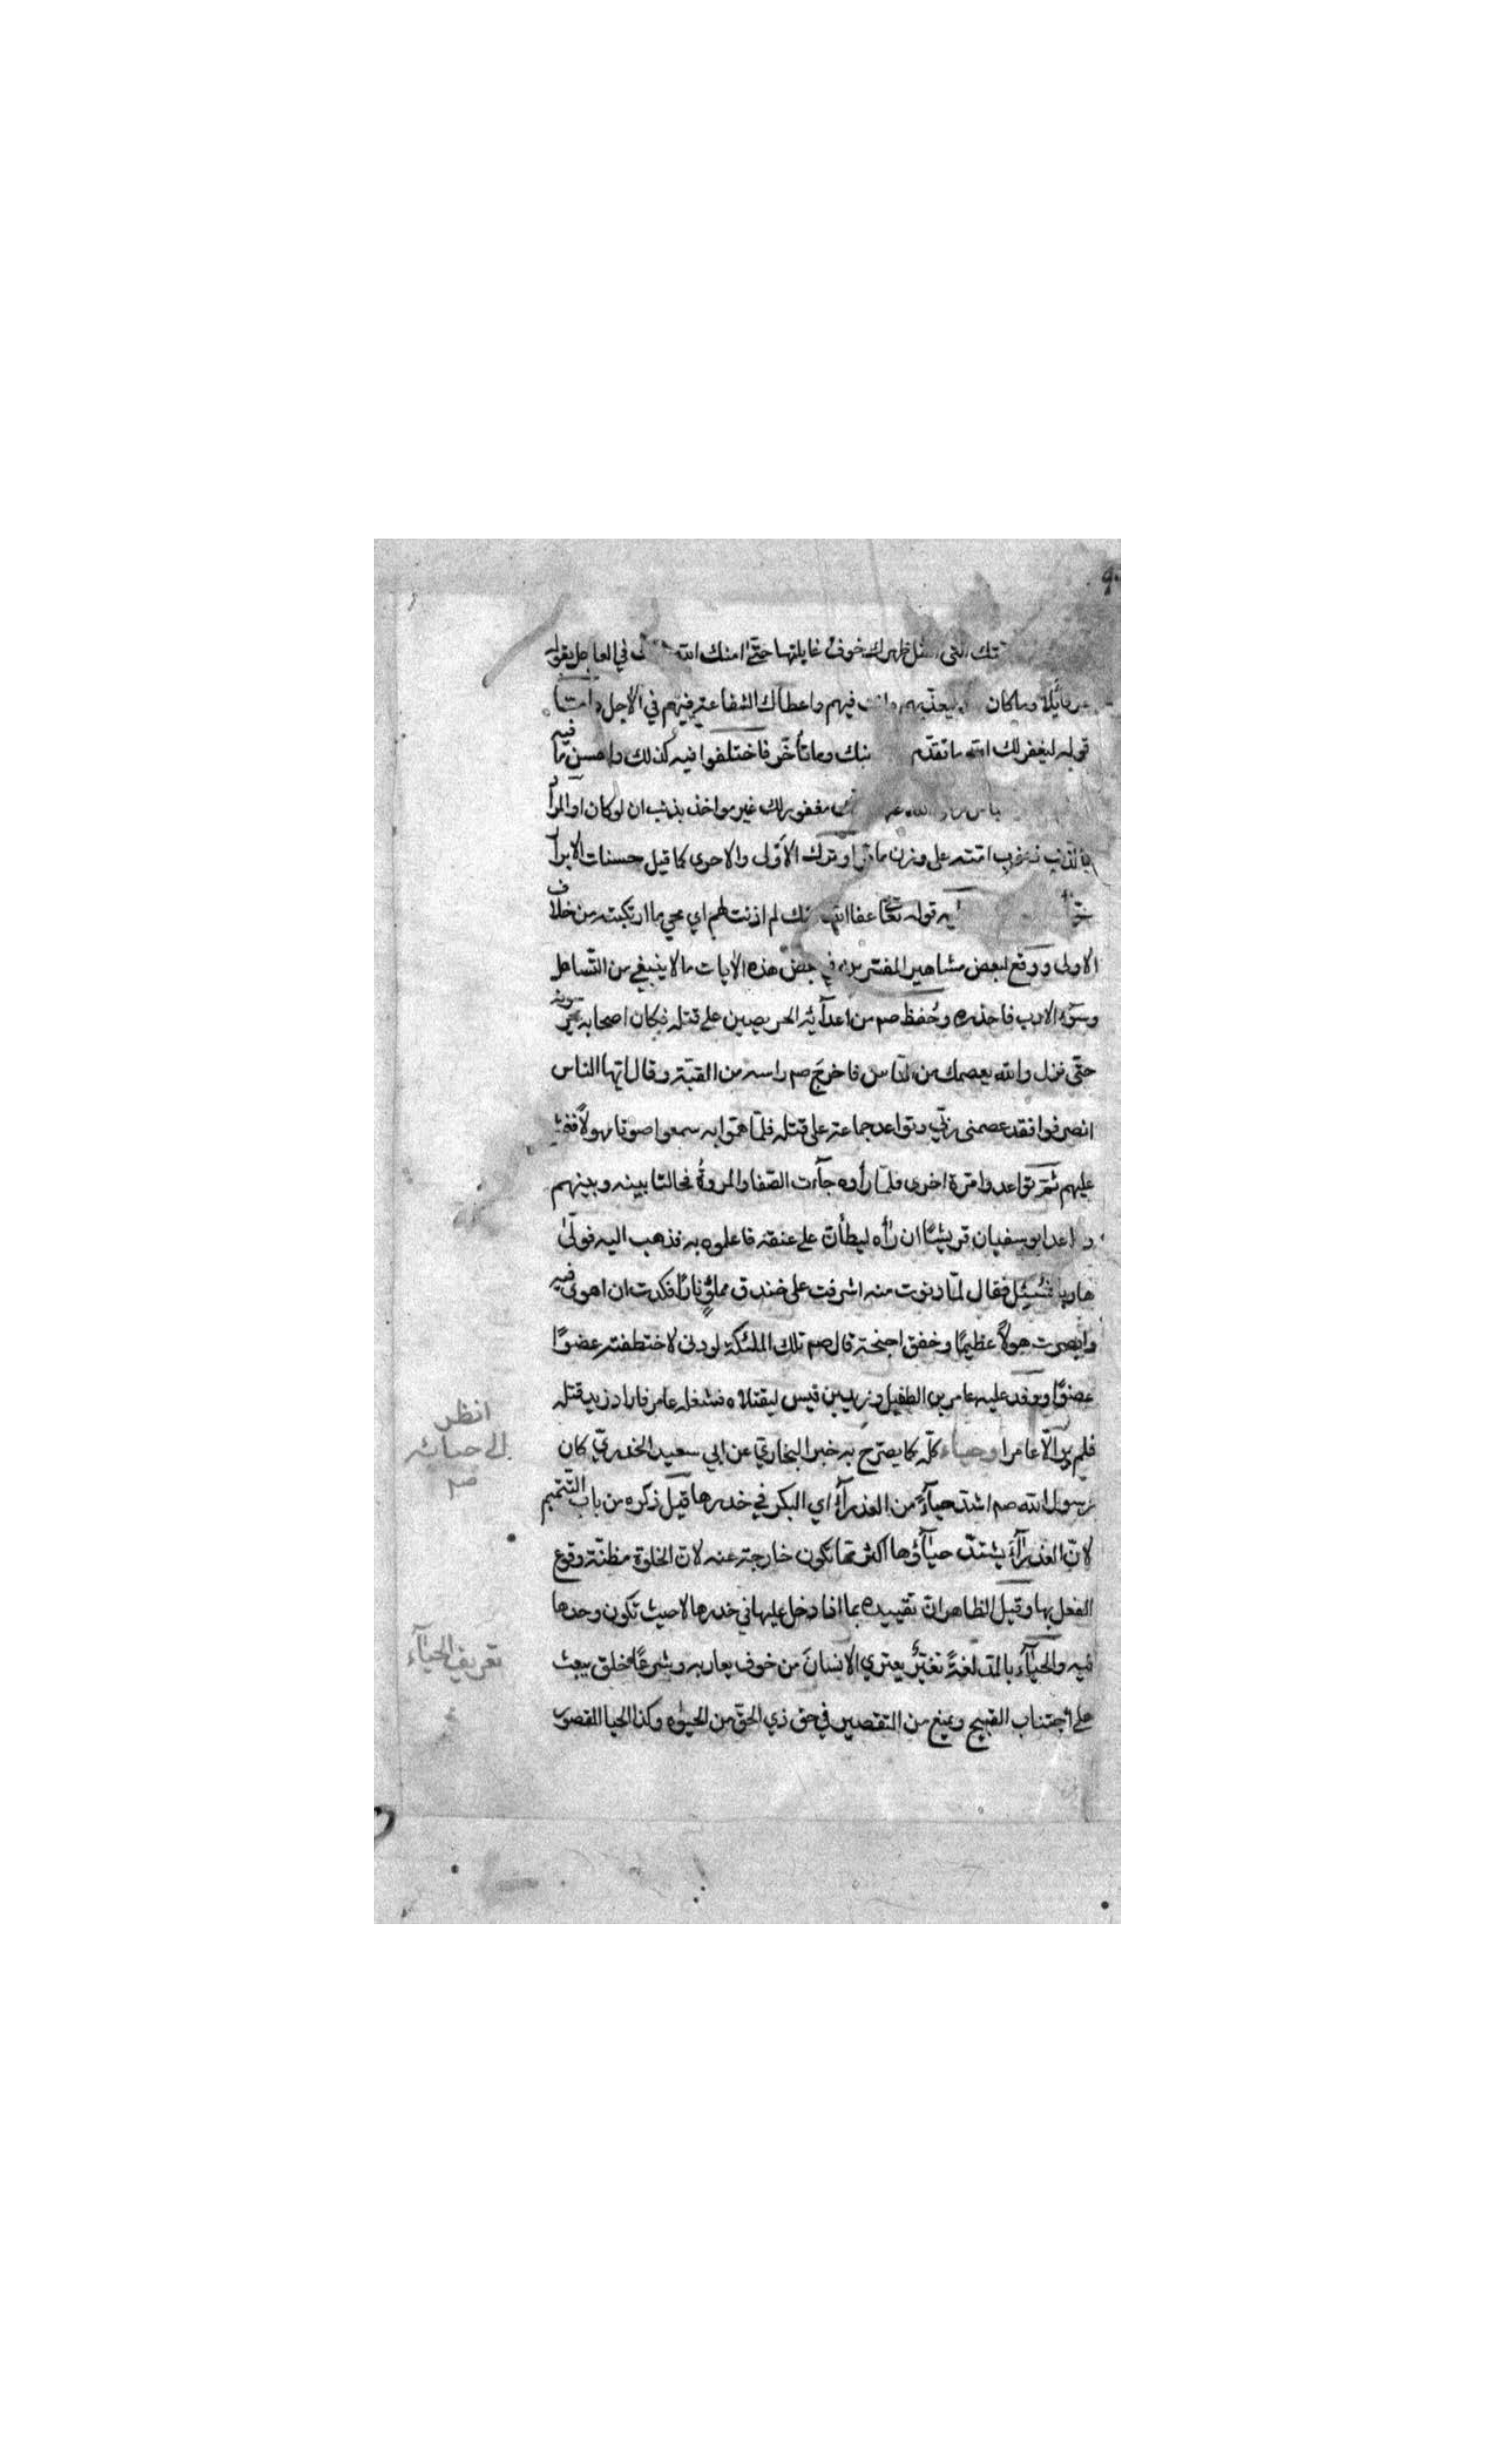 خوف غايلتها حتى امنك الله في العاجل بقوله
عز قائلا وما كان ليعذبهم وانت فيهم واعطاك الشفاعة فيهم في الاجل وامتا
قوله ليغفر لك الله ما تقدم نبك وما تأخّر فاختلفوا فيه كذلك واحسن ما فيه
مغفور لك غير مواخذ بذنب ان لو كان او المراد
بالذنب امته على وزن او ترك الاَولى والاحرى كما قيل حسنات الابرار
قوله تعا عفا الله نك لم اذنت لهم اي محي ما ارتكبته من خلاف
الاولى ووقع لبعض مشاهير المفسرين في بعض هذه الايات ما لا ينبغي من التّساهل
وسوء الادب فاحذره وحُفظ صم من اعدآئه الحريصين على قتله فكان اصحابه يحرسونه
حتّى نزل والله يعصمك من الناس فاخرجَ صم راسه من القبّة وقال ايّها الناس
انصرفوا فقد عصمنى ربّي وتواعد جماعة على قتله فلمّا همّوا به سمعوا صوتا مهولاً فغشي
عليهم ثمّ تواعدوا مرّة اخرى فلمّا رأوه جآءت الصّفا والمروةُ فحالتا بينه وبينهم
واعد ابو سفيان قريشًا ان رأه ليطأنّ على عنقه فاعلموه به فذهب اليه فولّىٰ
هاربا فسُئِل فقال لمّا دنوت منه اشرفت على خندق مملؤٍ نارًا فكدت ان اهوى فيه
وابصرت هولاً عظيمًا وخفق اجنحة قال صم تلك الملئكة لو دنى لاختطفته عضوًا
عضوًا ووفد عليه عامر بن الطفيل و بن قيس ليقتلاه فشغله عامر فاراد زيد قتله
فلم ير الّا عامرا وحياء كلّه كما يصرّح به خبر البخاريّ عن ابي سعيد الخدريّ كان
رسول الله صم اشدّ حيآءً من العذرآءِ اي البكر في خدرها قيل ذكره من باب التّتميم
لانّ العذرآءَ يشتدّ حيآؤها اكثر ممّا تكون خارجة عنه لانّ الخلوة مظنّة وقوع
الفعل بها وقيل الظاهر انّ تقييده بما اذا دخل عليها في خدرها لا حيث تكون وحدها
فيه والحيآءُ بالمدّ لغةً تغيّرٌ يعتري الانسانَ من خوف يعاب به وشرعًا خلق يبعث
على اجتناب القبيح ويمنع من التقصير في حق ذي الحقّ من الحيوٰه وكذا الحيا المقصور
انظر
الى حيائه
صم
تعريف الحيآء